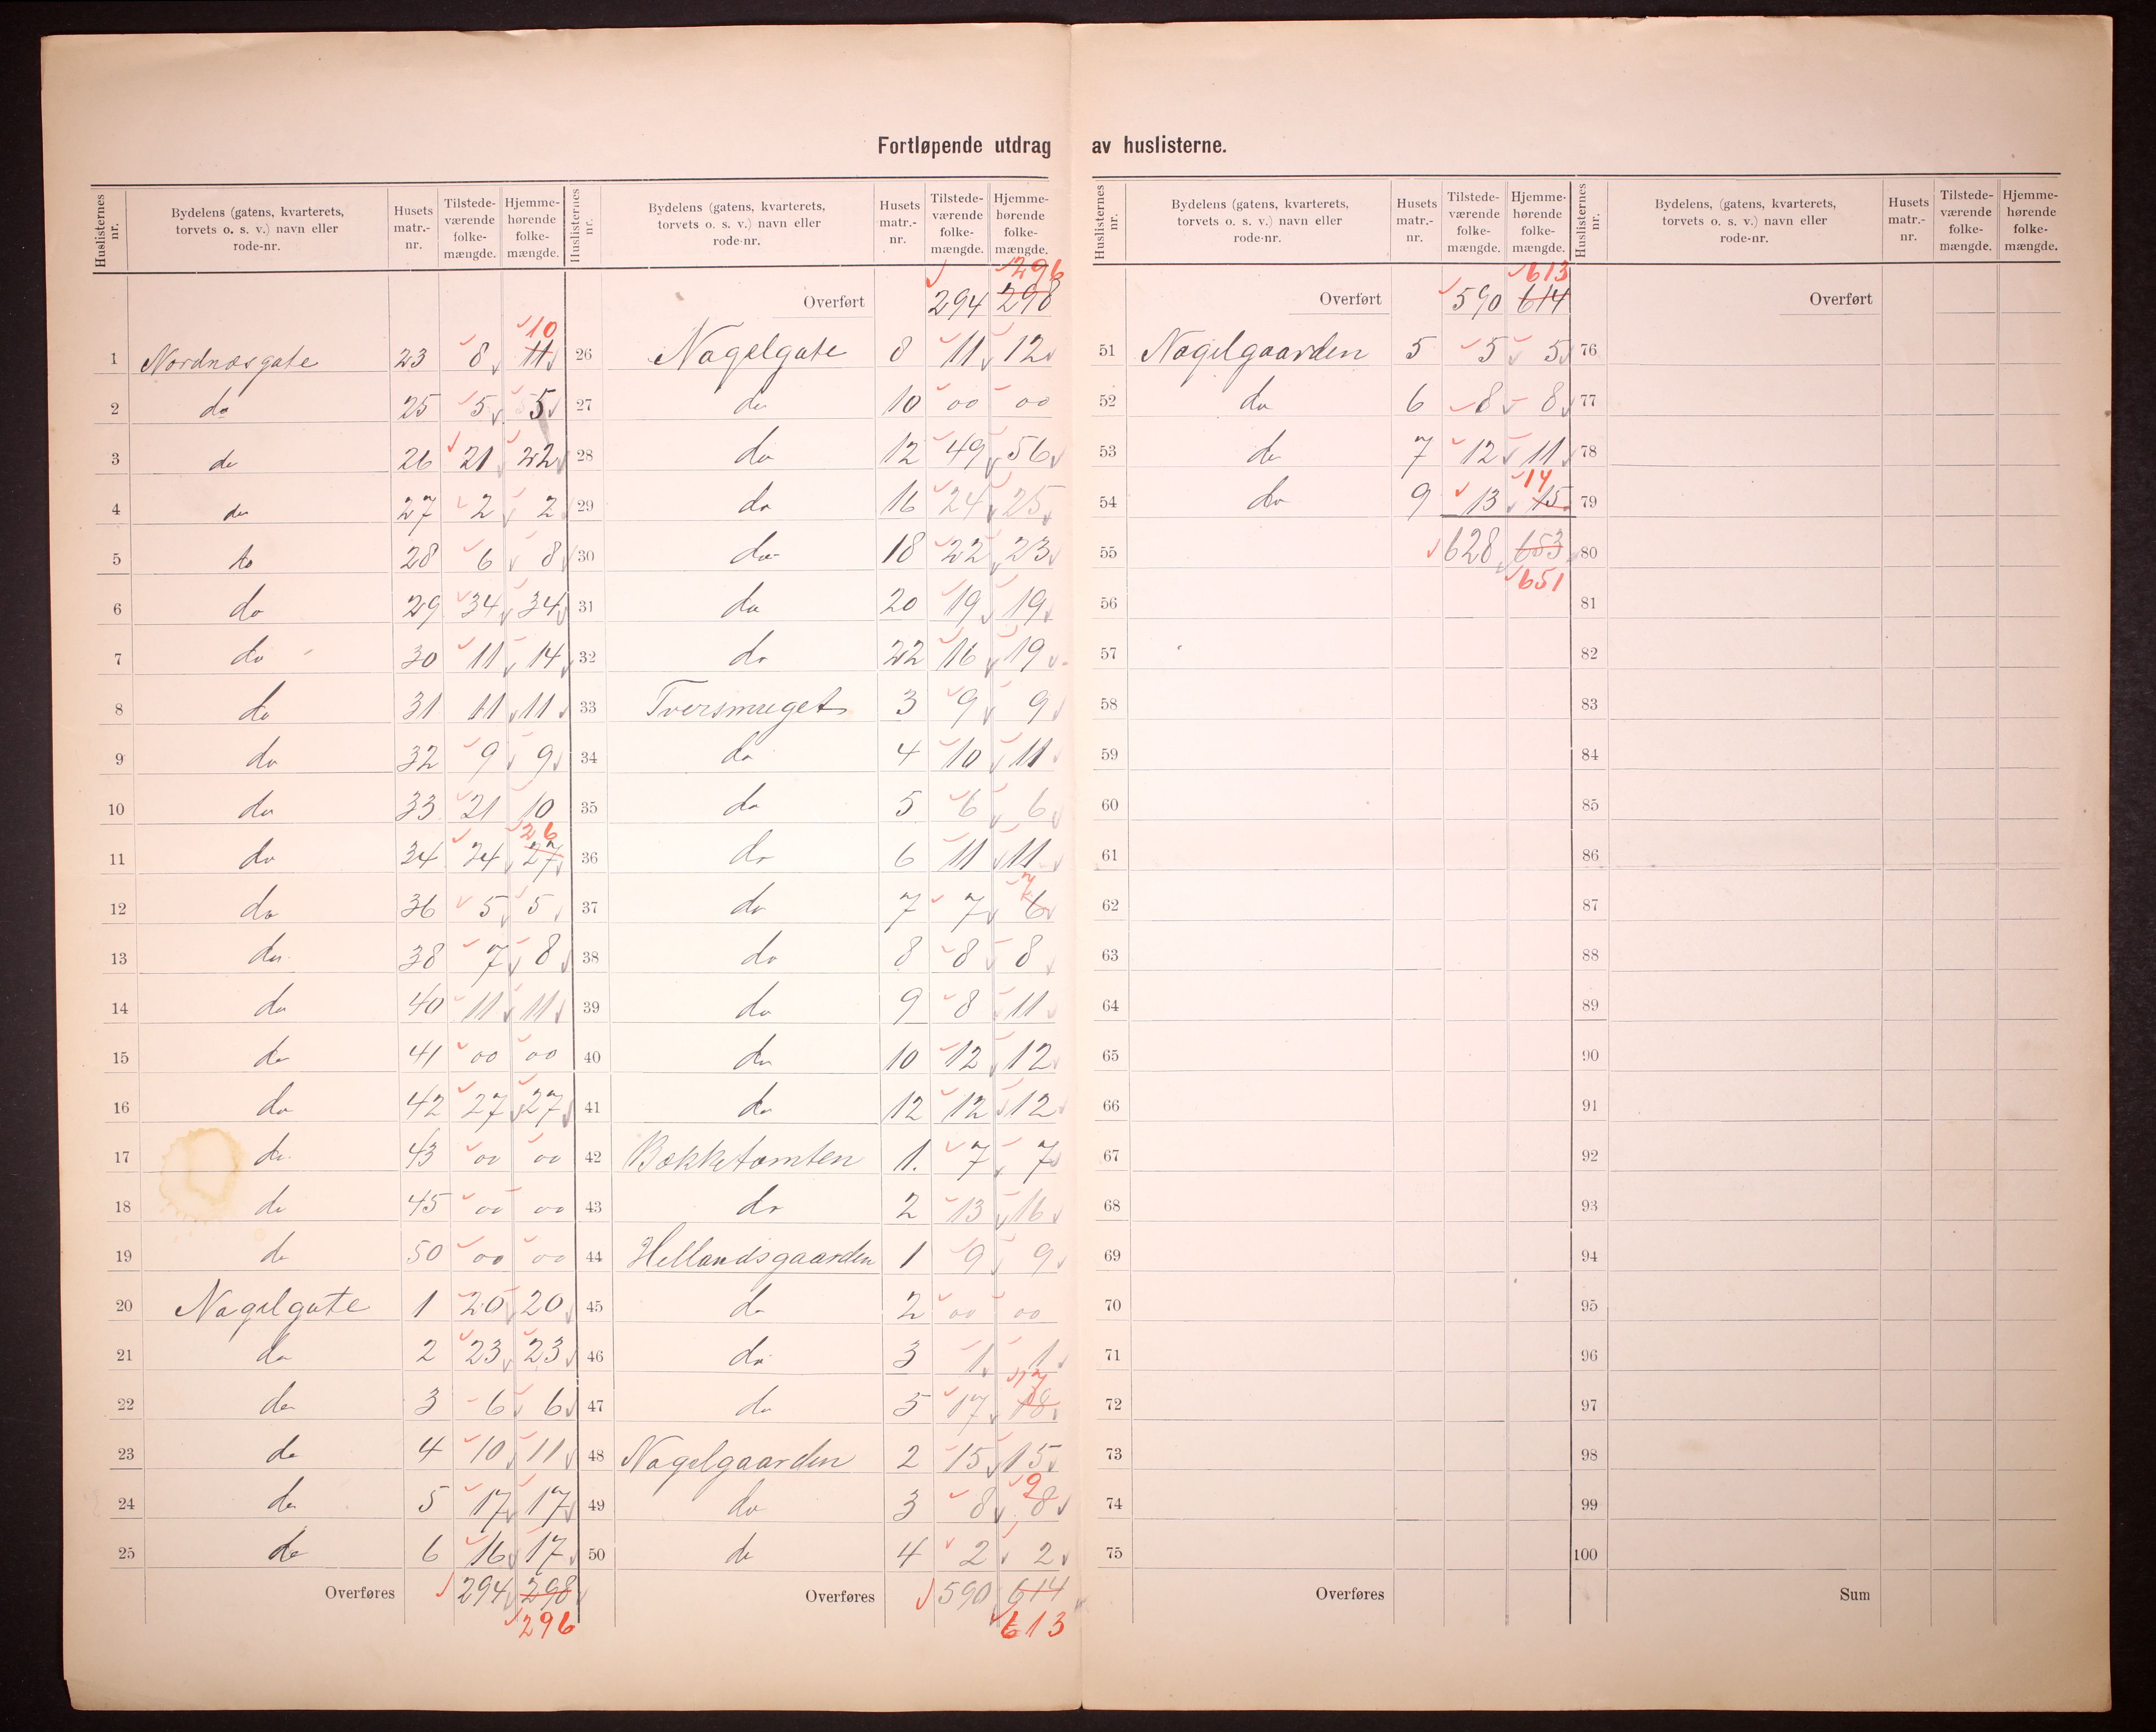 Fortløpende utdrag av huslisterne.
Huslisternes nr. | Bydelens (gatens, kvarterets, torvets o. s. v.) navn eller rode-nr. | Husets matr.-nr. | Tilstede-værende folke-mængde. | Hjemme-hørende folke-mængde.
1 Nordnæsgate 23 8 11 10
2 do 25 5 5
3 do 26 21 22
4 do 27 2 2
5 do 28 6 8
6 do 29 34 34
7 do 30 11 14
8 do 31 11 11
9 do 32 9 9
10 do 33 21 10
11 do 34 24 27 26
12 do 36 5 5
13 do 38 7 8
14 do 40 11 11
15 do 41 00 00
16 do 42 27 27
17 do 43 00 00
18 do 45 00 00
19 do 50 00 00
20 Nagelgate 1 20 20
21 do 2 23 23
22 do 3 6 6
23 do 4 10 11
24 do 5 17 17
25 do 6 16 17
Overføres 294 298
296
Huslisternes nr. | Bydelens (gatens, kvarterets, torvets o. s. v.) navn eller rode-nr. | Husets matr.-nr. | Tilstede-værende folke-mængde. | Hjemme-hørende folke-mængde.
296
Overført 294 298
26 Nagelgate 8 11 12
27 do 10 00 00
28 do 12 49 56
29 do 16 24 25
30 do 18 22 23
31 do 20 19 19
32 do 22 16 19
33 Tversmuget 3 9 9
34 do 4 10 11
35 do 5 6 6
36 do 6 11 11
37 do 7 7 6 7
38 do 8 8 8
39 do 9 8 11
40 do 10 12 12
41 do 12 12 12
42 Bakketomten 1. 7 7
43 do 2 13 16
44 Hellandsgaarden 1 9 9
45 do 2 00 00
46 do 3 1 1
47 do 5 17 18 17
48 Nagelgaarden 2 15 15
49 do 3 8 8 9
50 do 4 2 2
Overføres 590 614
613
Huslisternes nr. | Bydelens (gatens, kvarterets, torvets o. s. v.) navn eller rode-nr. | Husets matr.-nr. | Tilstede-værende folke-mængde. | Hjemme-hørende folke-mængde.
613
Overført 590 614
51 Nagelgaarden 5 5 5
52 do 6 8 8
53 do 7 12 11
54 do 9 13 15 14
55 628 653
651
56
57
58
59
60
61
62
63
64
65
66
67
68
69
70
71
72
73
74
75
Overføres
Huslisternes nr. | Bydelens, (gatens, kvarterets, torvets o. s. v.) navn eller rode-nr. | Husets matr.-nr. | Tilstede-værende folke-mængde. | Hjemme-hørende folke-mængde.
Overført
76
77
78
79
80
81
82
83
84
85
86
87
88
89
90
91
92
93
94
95
96
97
98
99
100
Sum